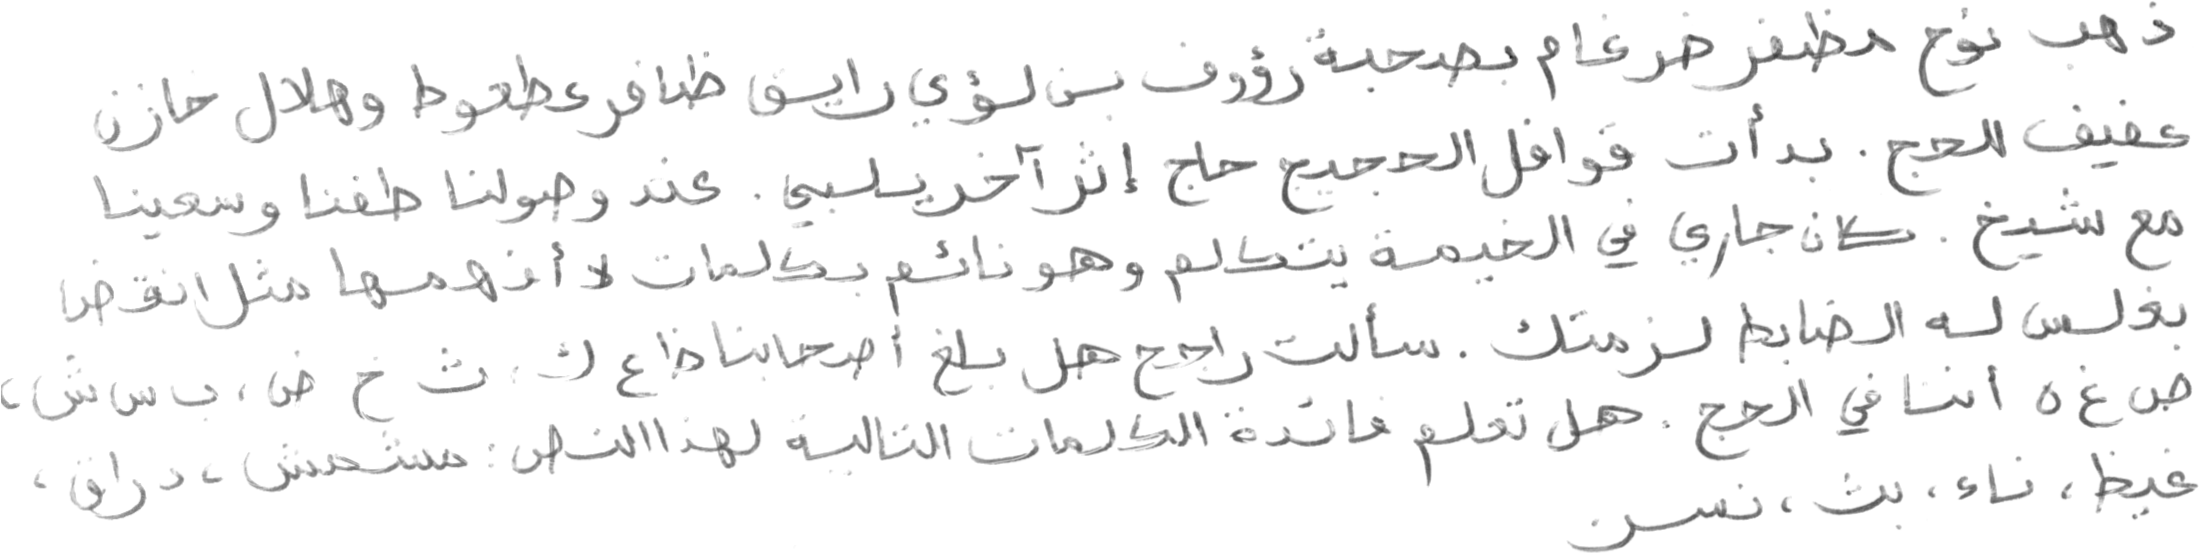 ذهب نوح مظفر ضرغام بصحبة رؤوف بن لؤي رايق ظافر عطعوط وهلال خازن
عفيف الحج . بدأت قوافل الحجيج حاج إثر آخر يلبي . عند وصولنا طفنا وسعينا
مع شيخ . كان جاري في الخيمة يتكلم وهو نائم بكلمات لا أفهمها مثل انقضا
بغلس له الضابط لزمتك . سألت راجح هل بلغ أصحابنا ذاع ك ، ث خ ض ، ب س ش ،
ص غ ه أننا في الحج . هل تعلم فائدة الكلمات التالية لهذا النص : مشمش ، دراق ،
غيظ ، ناء ، بث ، نسر